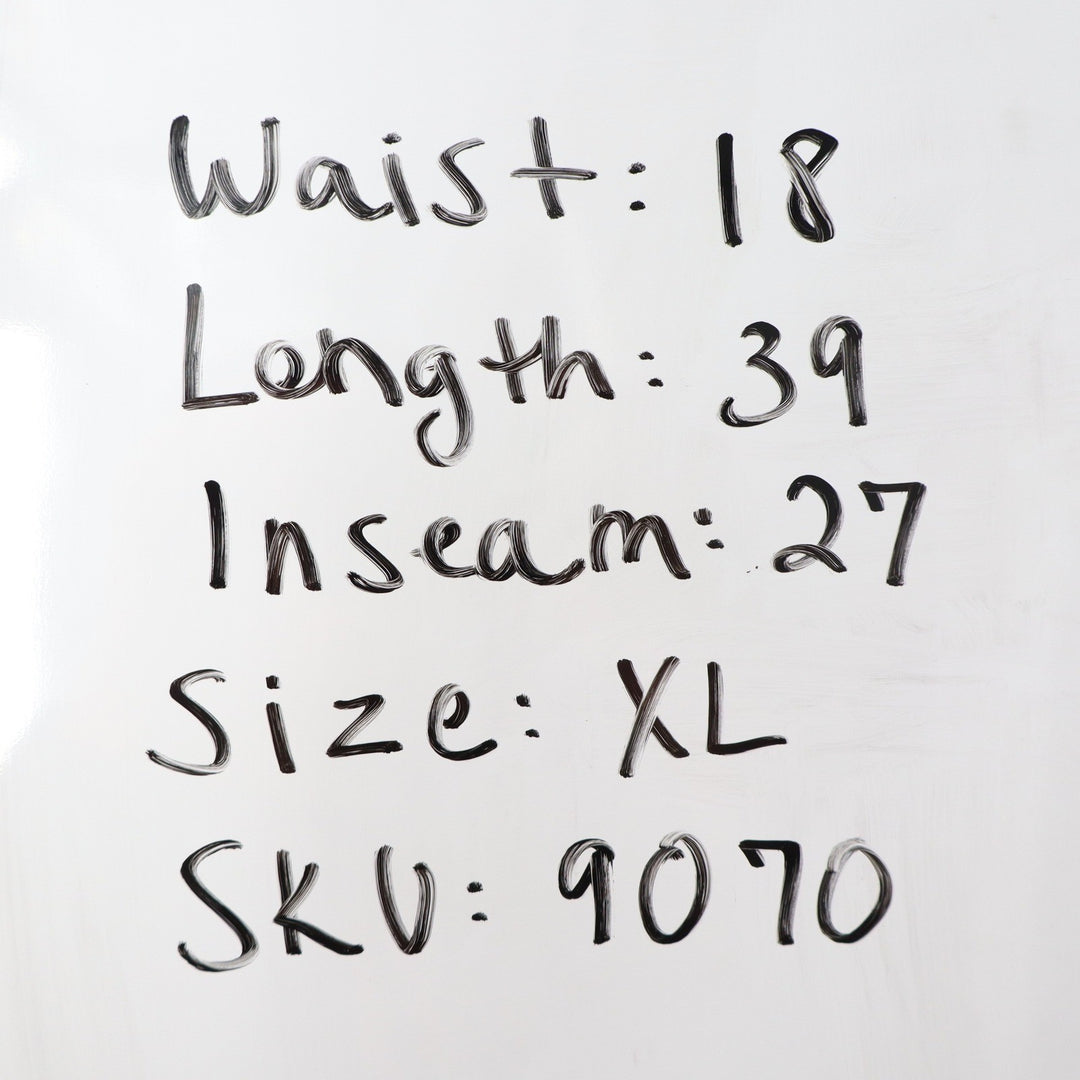 Waist: 18
Length: 39
Inseam: 27
Size: XL
SKU: 9070